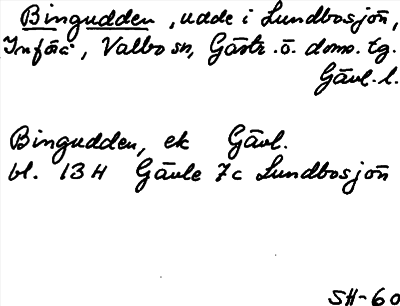 Bingudden, udde i Lundbosjön,
Inför, Valbo sn, Gästr. ö. doms. tg.
Gävl. l.
Bingudden, ek Gävl.
bl. 13H Gävle 7c Lundbosjön
SH-60